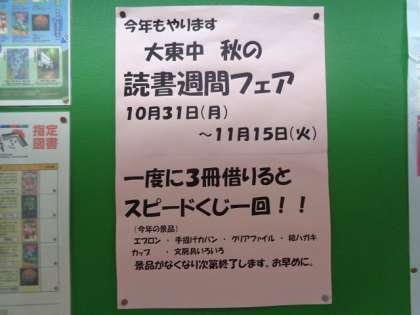 今年もやります
大東中 秋の
読書週間フェア
10月31日(月)
~11月15日(火)
一度に3冊借りると
スピードくじ一回!!
(今年の景品)
エプロン・手提げカバン・クリアファイル・絵ハガキ
カップ・文房具いろいろ
景品がなくなり次第終了します。お早めに。
指定
図書